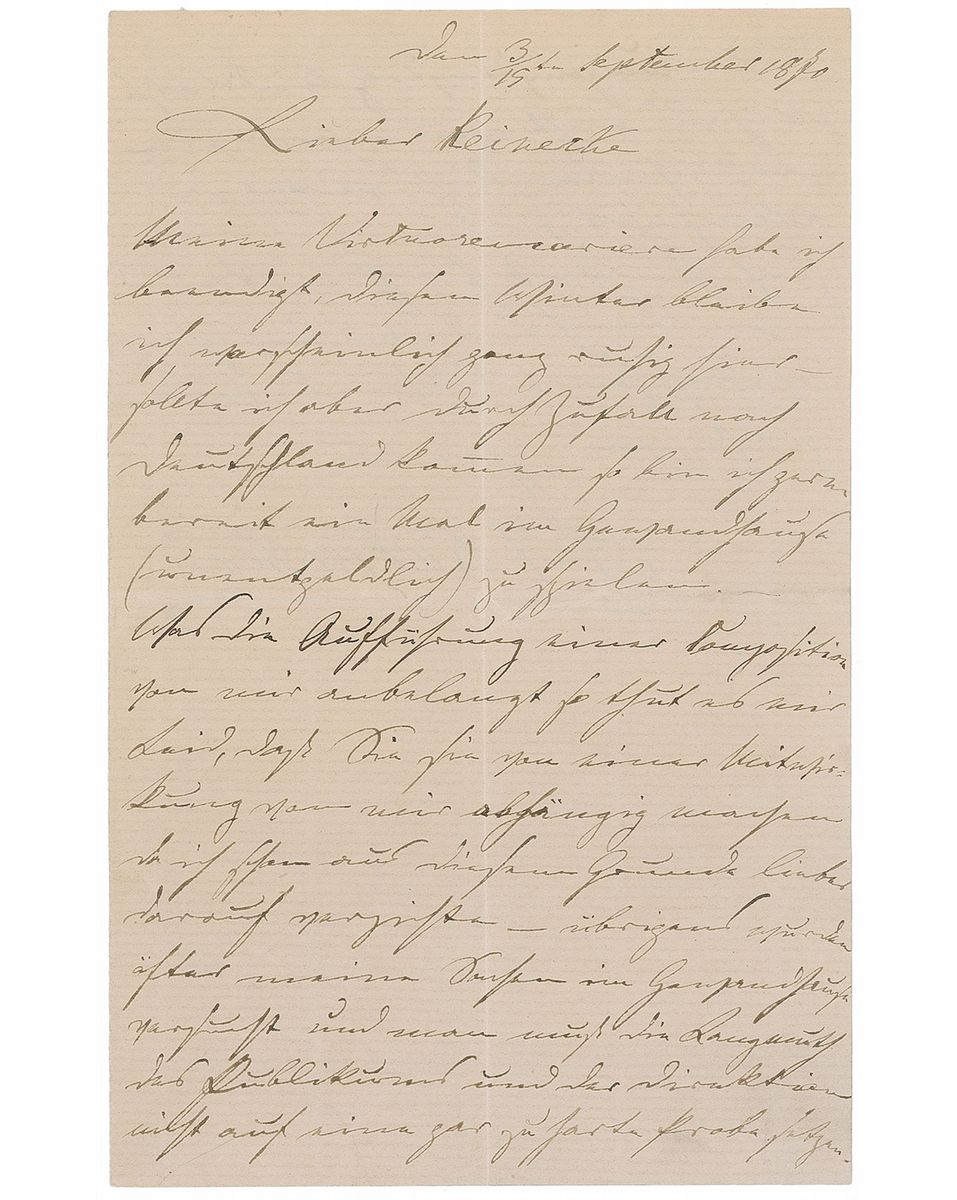 Den 3/15ten September 1870
Lieber Reinecke
Meine Virtuosencariere habe ich
beendigt, diesen Winter bleibe
ich warscheinlich ganz ruhig hier –
sollte ich aber durch Zufall nach
Deutschland kom̅en so bin ich gerne
bereit ein Mal im Gewandhause
(unentgeldlich) zu spielen. —
Was die Aufführung einer Composition
von mir anbelangt so thut es mir
Leid, daß Sie sie von einer Mitwir=
kung von mir abhängig machen
da ich schon aus diesem Grunde lieber
darauf verzichte – übrigens wurden
öfter meine Sachen im Gewandhause
versucht und man muß die Langmuth
des Publikums und der Direktion
nicht auf eine gar zu harte Probe setzen.